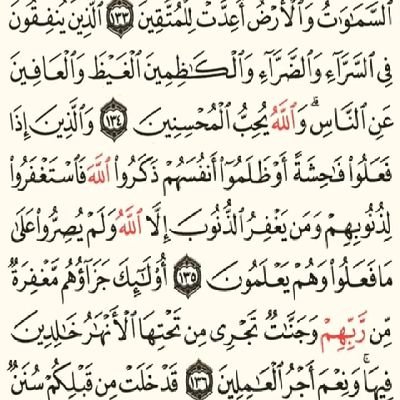 ٱلسَّمَٰوَٰتُ وَٱلْأَرْضُ أُعِدَّتْ لِلْمُتَّقِينَ ١٣٣ ٱلَّذِينَ يُنفِقُونَ
فِى ٱلسَّرَّآءِ وَٱلضَّرَّآءِ وَٱلْكَٰظِمِينَ ٱلْغَيْظَ وَٱلْعَافِينَ
عَنِ ٱلنَّاسِ ۗ وَٱللَّهُ يُحِبُّ ٱلْمُحْسِنِينَ ١٣٤ وَٱلَّذِينَ إِذَا
فَعَلُوا۟ فَٰحِشَةً أَوْ ظَلَمُوٓا۟ أَنفُسَهُمْ ذَكَرُوا۟ ٱللَّهَ فَٱسْتَغْفَرُوا۟
لِذُنُوبِهِمْ وَمَن يَغْفِرُ ٱلذُّنُوبَ إِلَّا ٱللَّهُ وَلَمْ يُصِرُّوا۟ عَلَىٰ
مَا فَعَلُوا۟ وَهُمْ يَعْلَمُونَ ١٣٥ أُو۟لَٰٓئِكَ جَزَآؤُهُم مَّغْفِرَةٌ
مِّن رَّبِّهِمْ وَجَنَّٰتٌ تَجْرِى مِن تَحْتِهَا ٱلْأَنْهَٰرُ خَٰلِدِينَ
فِيهَا ۚ وَنِعْمَ أَجْرُ ٱلْعَٰمِلِينَ ١٣٦ قَدْ خَلَتْ مِن قَبْلِكُمْ سُنَنٌ